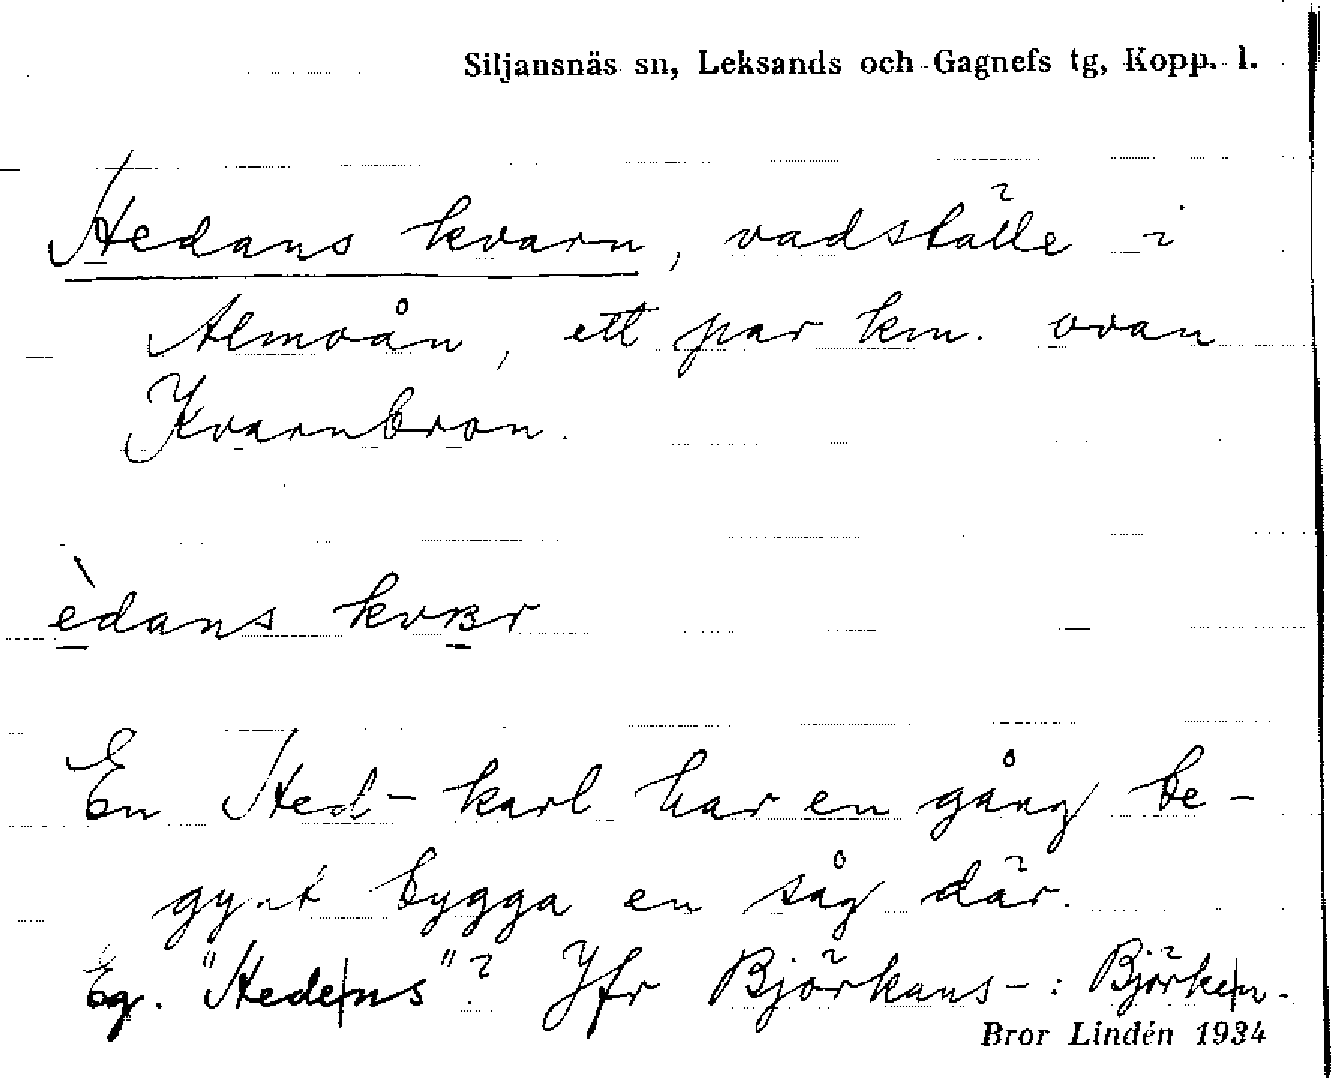 Siljansnäs sn, Leksands och Gagnefs tg, Kopp. l.
Hedans kvarn, vadställe i
Almoån, ett par km. ovan
Kvarnbron.
èdans kvar
En Hed-karl har en gång be-
gynt bygga en såg där.
Eg. "Hede|ns"? Jfr Björkans-: Björke|n-
Bror Lindén 1934